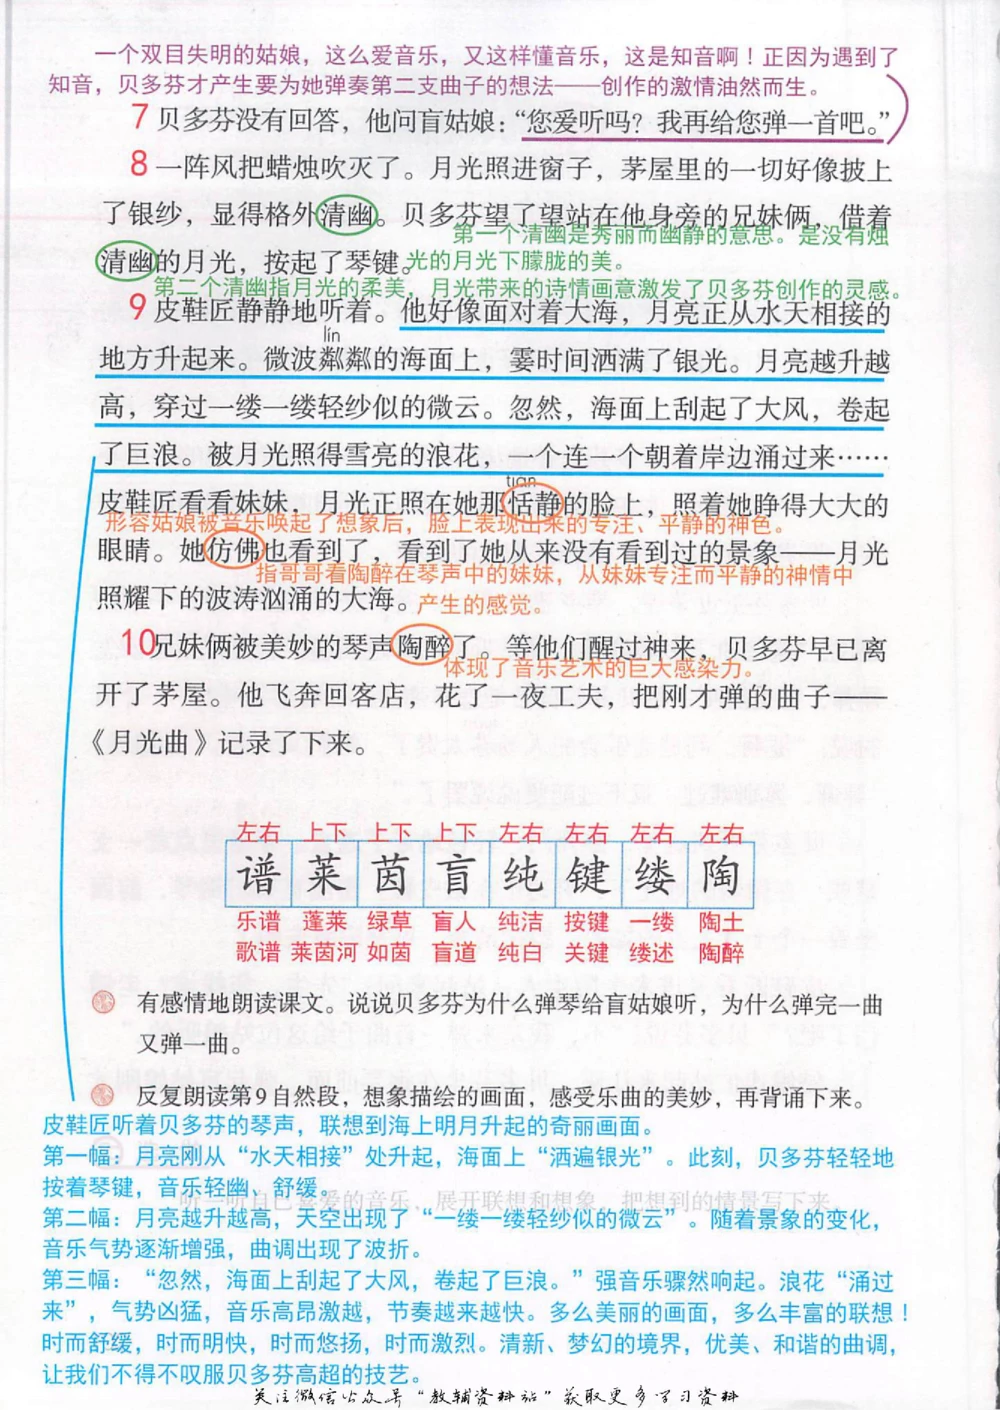 一个双目失明的姑娘，这么爱音乐，又这样懂音乐，这是知音啊！正因为遇到了
知音，贝多芬才产生要为她弹奏第二支曲子的想法——创作的激情油然而生。
7 贝多芬没有回答，他问盲姑娘：“您爱听吗？我再给您弹一首吧。”
8 一阵风把蜡烛吹灭了。月光照进窗子，茅屋里的一切好像披上
了银纱，显得格外清幽。贝多芬望了望站在他身旁的兄妹俩，借着
第一个清幽是秀丽而幽静的意思。是没有烛
清幽的月光，按起了琴键。
光的月光下朦胧的美。
第二个清幽指月光的柔美，月光带来的诗情画意激发了贝多芬创作的灵感。
9 皮鞋匠静静地听着。他好像面对着大海，月亮正从水天相接的
lín
地方升起来。微波粼粼的海面上，霎时间洒满了银光。月亮越升越
高，穿过一缕一缕轻纱似的微云。忽然，海面上刮起了大风，卷起
了巨浪。被月光照得雪亮的浪花，一个连一个朝着岸边涌过来……
tián
皮鞋匠看看妹妹，月光正照在她那恬静的脸上，照着她睁得大大的
形容姑娘被音乐唤起了想象后，脸上表现出来的专注、平静的神色。
眼睛。她仿佛也看到了，看到了她从来没有看到过的景象——月光
指哥哥看陶醉在琴声中的妹妹，从妹妹专注而平静的神情中
照耀下的波涛汹涌的大海。
产生的感觉。
10 兄妹俩被美妙的琴声陶醉了。等他们醒过神来，贝多芬早已离
体现了音乐艺术的巨大感染力。
开了茅屋。他飞奔回客店，花了一夜工夫，把刚才弹的曲子——
《月光曲》记录了下来。
左右 上下 上下 上下 左右 左右 左右 左右
谱 莱 茵 盲 纯 键 缕 陶
乐谱 蓬莱 绿草 盲人 纯洁 按键 一缕 陶土
歌谱 莱茵河 如茵 盲道 纯白 关键 缕述 陶醉
有感情地朗读课文。说说贝多芬为什么弹琴给盲姑娘听，为什么弹完一曲
又弹一曲。
反复朗读第9自然段，想象描绘的画面，感受乐曲的美妙，再背诵下来。
皮鞋匠听着贝多芬的琴声，联想到海上明月升起的奇丽画面。
第一幅：月亮刚从“水天相接”处升起，海面上“洒遍银光”。此刻，贝多芬轻轻地
按着琴键，音乐轻幽、舒缓。
听一听自己喜爱的音乐，展开联想和想象，把想到的情景写下来。
第二幅：月亮越升越高，天空出现了“一缕一缕轻纱似的微云”。随着景象的变化，
音乐气势逐渐增强，曲调出现了波折。
第三幅：“忽然，海面上刮起了大风，卷起了巨浪。”强音乐骤然响起。浪花“涌过
来”，气势凶猛，音乐高昂激越，节奏越来越快。多么美丽的画面，多么丰富的联想！
时而舒缓，时而明快，时而悠扬，时而激烈。清新、梦幻的境界，优美、和谐的曲调，
让我们不得不叹服贝多芬高超的技艺。
关注微信公众号“教辅资料站”获取更多学习资料